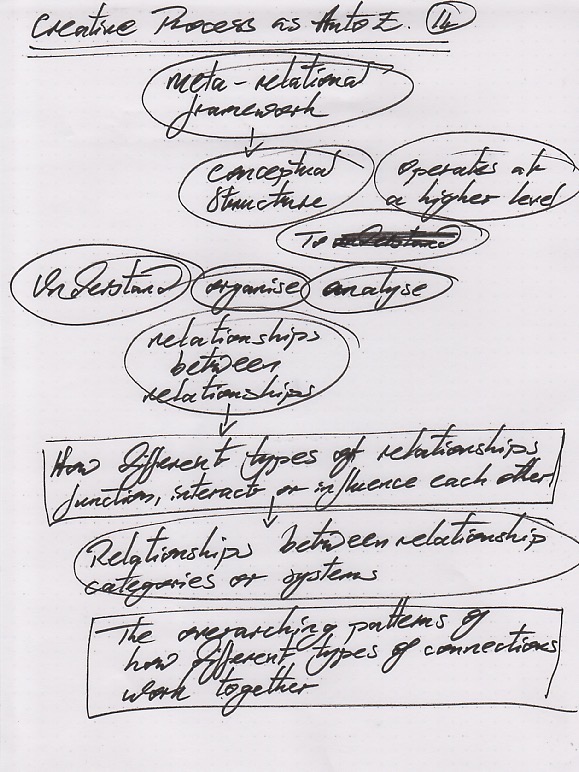 Creative Process as Auto E.
meta-relational
framework
conceptual
structure
operates at
a higher level
To understand
Understand organise analyse
relationships
between
relationships
How different types of relationships
function, interact or influence each other
Relationships between relationship
categories or systems
The overarching patterns of
how different types of connections
work together